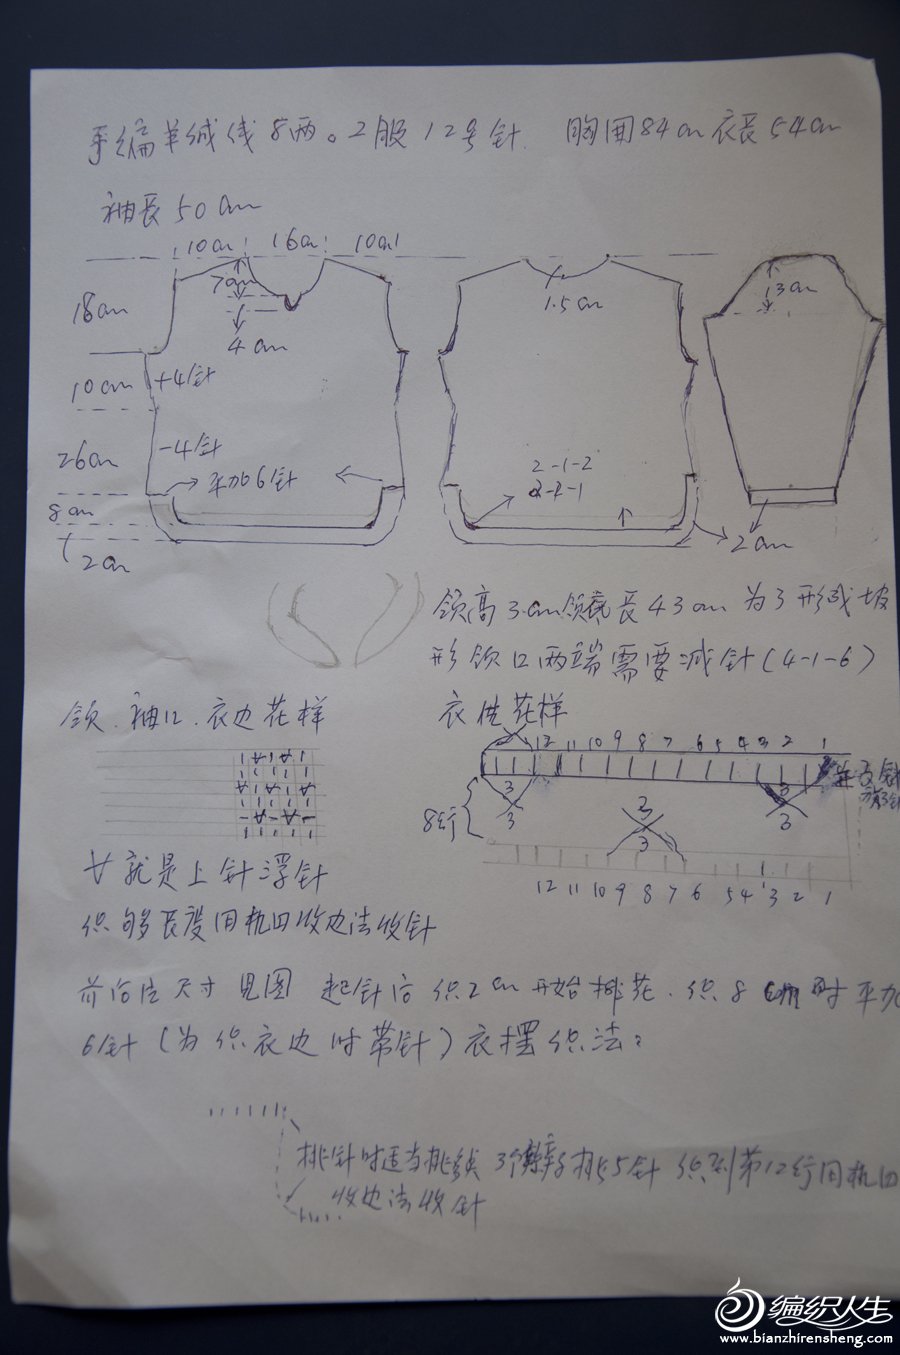 手编羊绒线8两。2股12号针 胸围84cm衣长54cm
袖长50cm
10cm 16cm 10cm
7cm
4cm
18cm
10cm
+4针
26cm
-4针
平加6针
8cm
2cm
1.5cm
2-1-2
2-2-1
2cm
13cm
领高3cm领底长43cm为了形成坡
形领口两端需要减针(4-1-6)
领、袖口、衣边花样
衣花样
12 11 10 9 8 7 6 5 4 3 2 1
8行
3
3
3
3
3
3
12 11 10 9 8 7 6 5 4 3 2 1
就是上针浮针
织够长度用机四收边法收针
前后片尺寸见图 起针后织2cm开始排花.织8cm时平加
6针(为织衣边时带针)衣摆织法:
挑针时适当挑线 3个辫子挑5针 织到第12行用机四
收边法收针
编织人生
www.bianzhirensheng.com